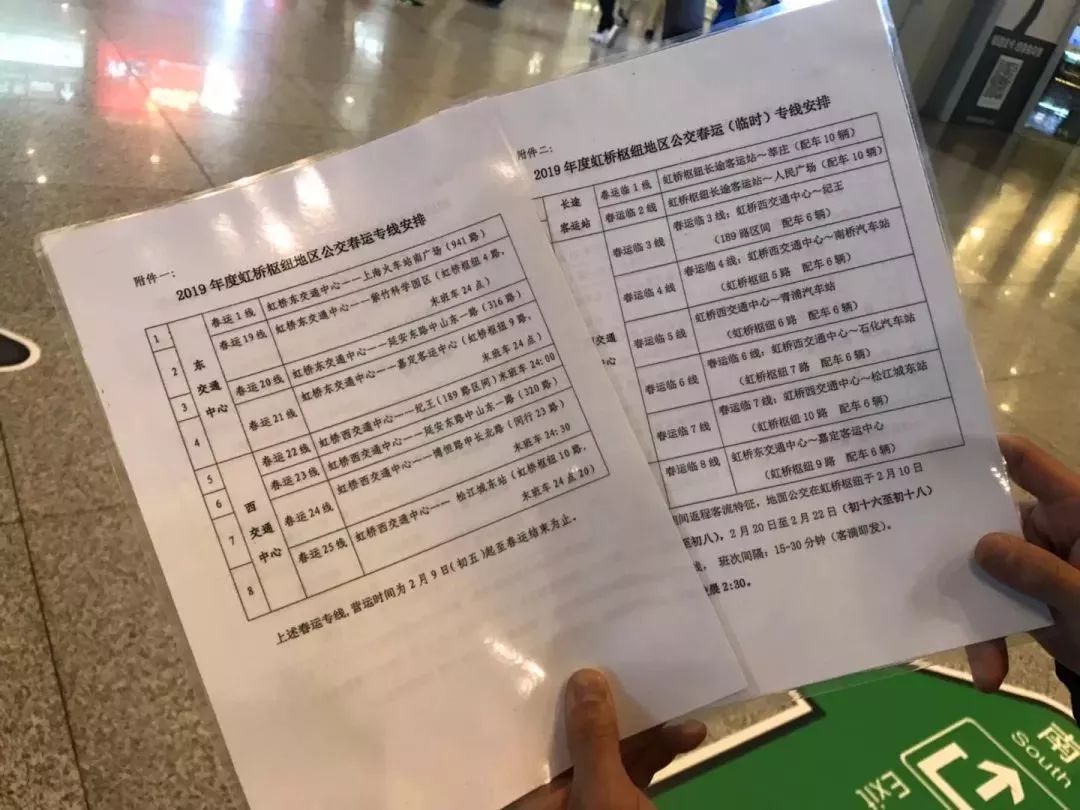 附件一：
2019 年度虹桥枢纽地区公交春运专线安排
1 东交通中心 春运1线 虹桥东交通中心——上海火车站南广场（941 路）
2 春运19线 虹桥东交通中心——紫竹科学园区（虹桥枢纽 4 路，
末班车 24 点）
3 春运20线 虹桥东交通中心——延安东路中山东一路（316 路）
4 春运21线 虹桥东交通中心——嘉定客运中心（虹桥枢纽 9 路，
末班车 24 点）
5 西交通中心 春运22线 虹桥西交通中心——纪王（189 路区间）末班车 24:00
6 春运23线 虹桥西交通中心——延安东路中山东一路（320 路）
7 春运24线 虹桥西交通中心——博恒路申长北路（闵行 23 路）
末班车 24:30
8 春运25线 虹桥西交通中心—— 松江城东站（虹桥枢纽 10 路，
末班车 24 点 20）
上述春运专线，营运时间为 2 月 9 日（初五）起至春运结束为止。
附件二：
2019 年度虹桥枢纽地区公交春运（临时）专线安排
长途客运站 春运临 1 线 虹桥枢纽长途客运站～莘庄（配车 10 辆）
春运临 2 线 虹桥枢纽长途客运站～人民广场（配车 10 辆）
交通中心 春运临 3 线 春运临 3 线：虹桥西交通中心～纪王
（189 路区间 配车 6 辆）
春运临 4 线 春运临 4 线：虹桥西交通中心～南桥汽车站
（虹桥枢纽 5 路 配车 6 辆）
春运临 5 线 虹桥西交通中心～青浦汽车站
（虹桥枢纽 6 路 配车 6 辆）
春运临 6 线 春运临 6 线：虹桥西交通中心～石化汽车站
（虹桥枢纽 7 路 配车 6 辆）
春运临 7 线 春运临 7 线：虹桥西交通中心～松江城东站
（虹桥枢纽 10 路 配车 6 辆）
春运临 8 线 虹桥东交通中心～嘉定客运中心
（虹桥枢纽 9 路 配车 6 辆）
期间返程客流特征，地面公交在虹桥枢纽于 2 月 10 日
至初八），2 月 20 日至 2 月 22 日（初十六至初十八）
线， 班次间隔：15-30 分钟（客满即发）。
晨 2:30。
南
South
EXIT